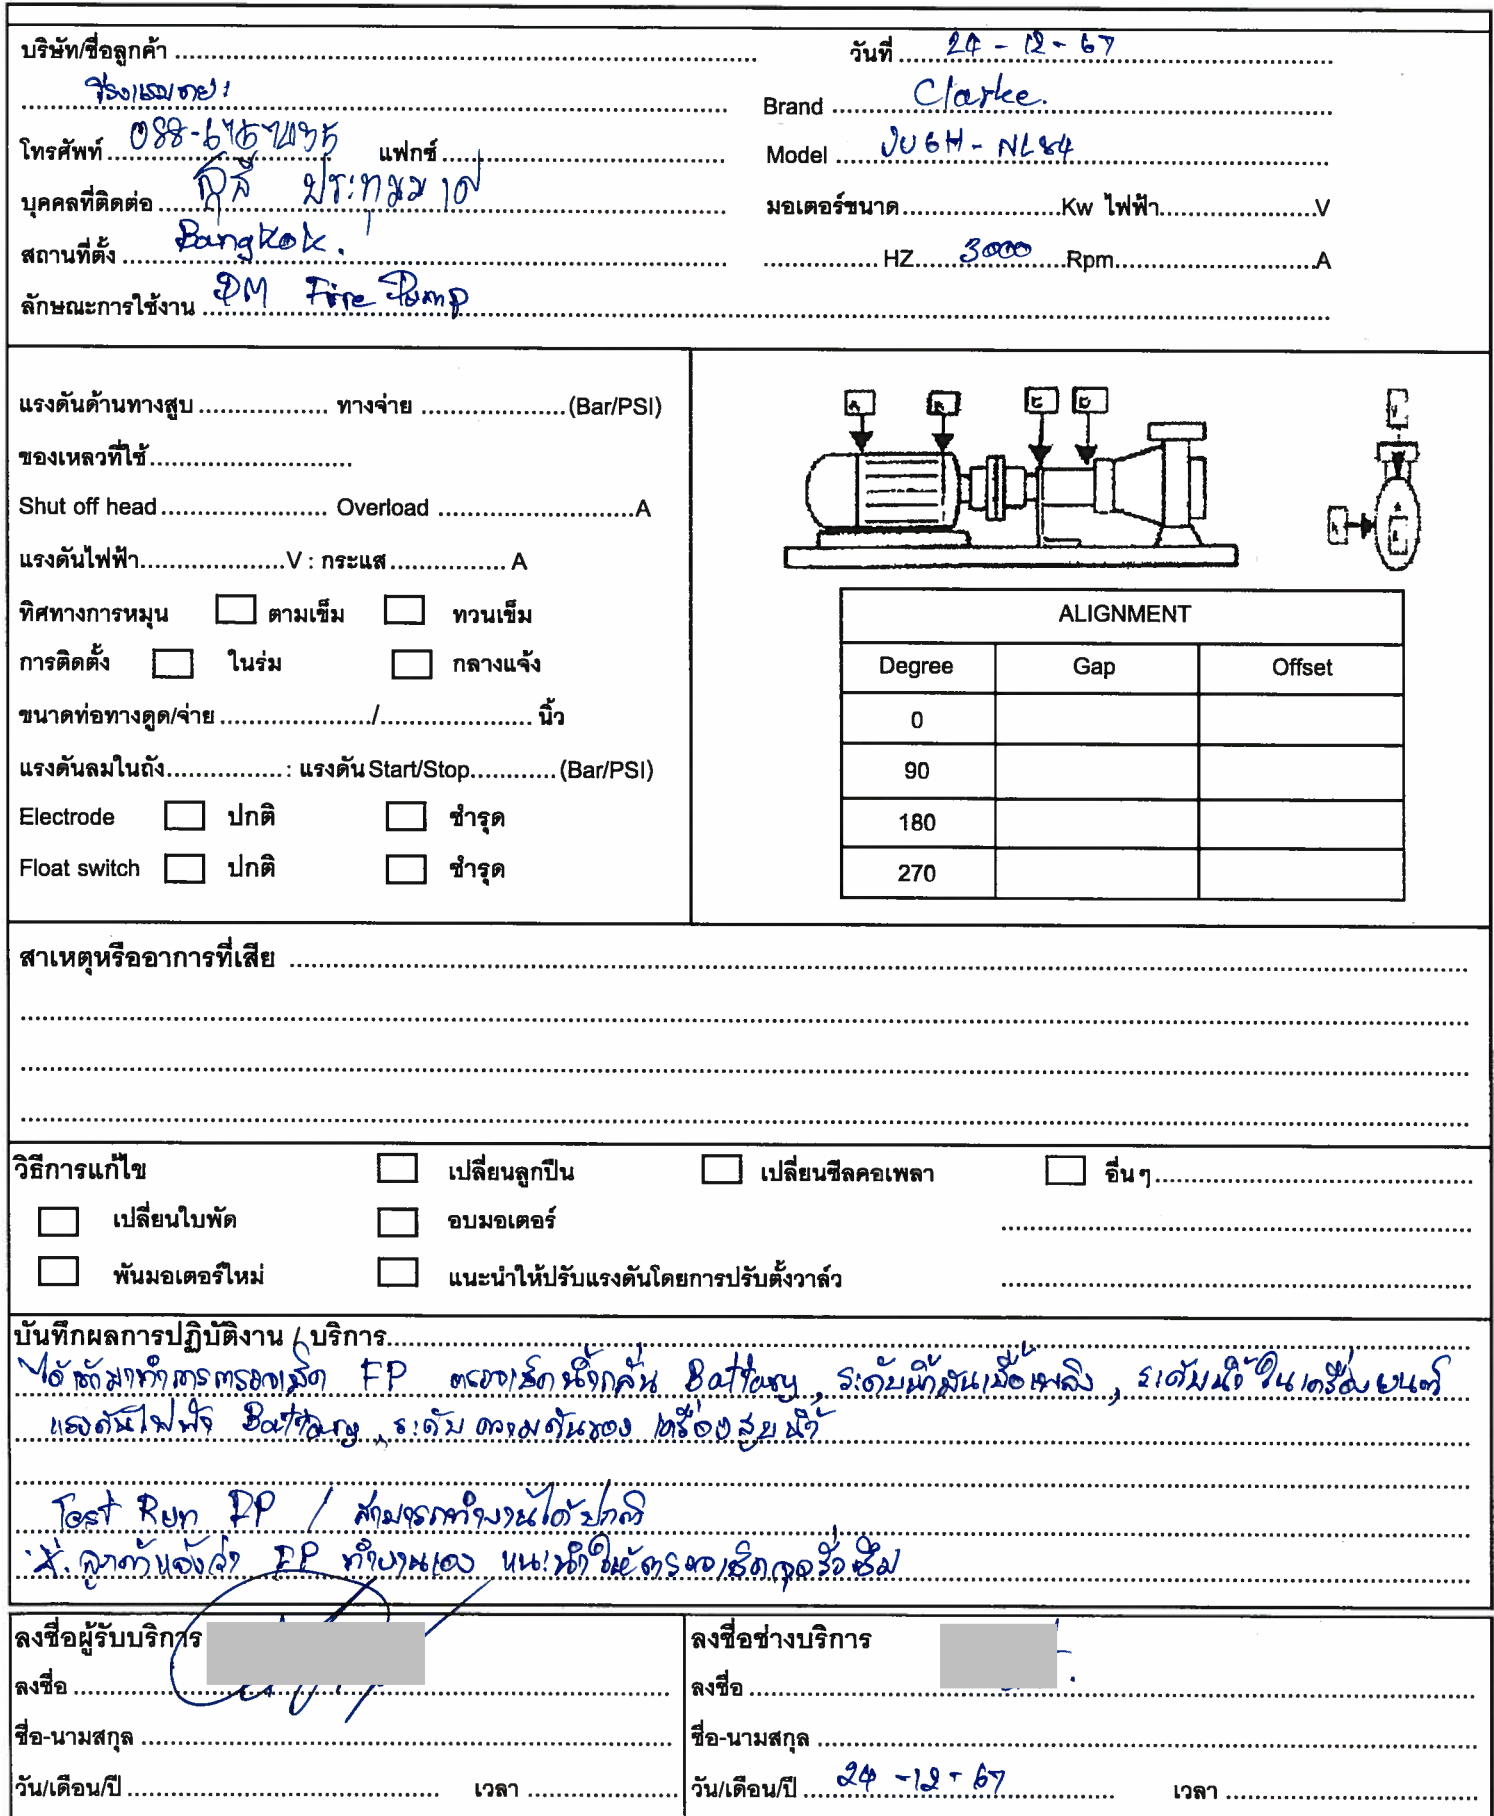 บริษัท/ชื่อลูกค้า .......... วันที่ 24 - 12 - 67
Brand Clarke.
โทรศัพท์ 088- แฟกซ์ .......... Model JU6H - NL84
บุคคลที่ติดต่อ .......... มอเตอร์ขนาด..........Kw ไฟฟ้า..........V
สถานที่ตั้ง Bangkok. .......... HZ 3000 Rpm..........A
ลักษณะการใช้งาน PM Fire Pump
แรงดันด้านทางสูบ .......... ทางจ่าย ..........(Bar/PSI)
ของเหลวที่ใช้..........
Shut off head.......... Overload ..........A
แรงดันไฟฟ้า..........V : กระแส.......... A
ทิศทางการหมุน ตามเข็ม ทวนเข็ม
การติดตั้ง ในร่ม กลางแจ้ง
ขนาดท่อทางดูด/จ่าย ........../.......... นิ้ว
แรงดันลมในถัง..........: แรงดัน Start/Stop..........(Bar/PSI)
Electrode ปกติ ชำรุด
Float switch ปกติ ชำรุด
ALIGNMENT
Degree Gap Offset
0
90
180
270
สาเหตุหรืออาการที่เสีย ..........
วิธีการแก้ไข เปลี่ยนลูกปืน เปลี่ยนซีลคอเพลา อื่น ๆ..........
เปลี่ยนใบพัด อบมอเตอร์
พันมอเตอร์ใหม่ แนะนำให้ปรับแรงดันโดยการปรับตั้งวาล์ว
บันทึกผลการปฏิบัติงาน / บริการ..........
ได้เข้ามาทำการตรวจเช็ค FP ตรวจเช็คน้ำกลั่น Battary, ระดับน้ำมันเชื้อเพลิง, ระดับน้ำในเครื่องยนต์
แรงดันไฟฟ้า Battary, ระดับความดันของ เครื่องสูบน้ำ
Test Run FP / สามารถทำงานได้ปกติ
ลูกค้าแจ้งว่า FP ทำงานเอง แนะนำให้ตรวจเช็คจุดรั่วซึม
ลงชื่อผู้รับบริการ ลงชื่อช่างบริการ
ลงชื่อ .......... ลงชื่อ ..........
ชื่อ-นามสกุล .......... ชื่อ-นามสกุล ..........
วัน/เดือน/ปี .......... เวลา .......... วัน/เดือน/ปี 24 -12- 67 เวลา ..........